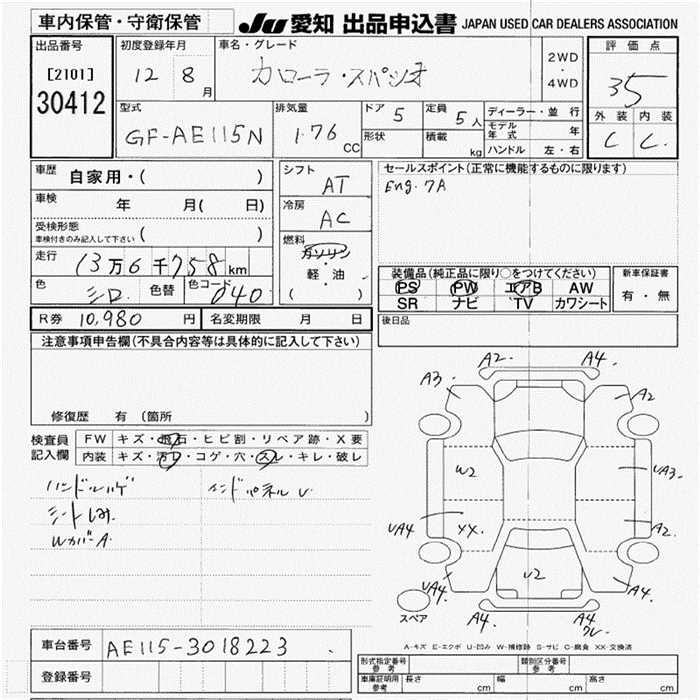 車内保管・守衛保管
JU 愛知 出品申込書 JAPAN USED CAR DEALERS ASSOCIATION
出品番号
[2101]
30412
初度登録年月
12 8 月
車名・グレード
カローラ・スパシオ
2WD
・
4WD
評価点
35
外装 内装
C C
型式
GF-AE115N
排気量
1.76 CC
ドア 5
形状
定員 5人
積載 kg
ディーラー・並行
モデル年式 年
ハンドル 左・右
車歴 自家用・( )
車検 年 月( 日)
受検形態
車検付きのみ記入して下さい ( )
走行 13万6千758km
色 シロ 色替 色コード 040
シフト AT
冷房 AC
燃料 ガソリン
軽・油
( )
セールスポイント(正常に機能するものに限ります)
Eng.7A
装備品(純正品に限り○をつけてください)
PS PW エアB AW
SR ナビ TV カワシート
新車保証書
有・無
R券 10,980 円 名変期限 月 日
後日品
注意事項申告欄(不具合内容等は具体的に記入して下さい)
修復歴 有 (箇所 )
検査員記入欄
FW キズ・飛石・ヒビ割・リペア跡・X要
内装 キズ・汚レ・コゲ・穴・スレ・キレ・破レ
ハンドルハゲ
シートしみ
WカバーA
インドパネルU
A2 A4
A3 A2
W2 UA3
UA4 XX A2
UA4 U2 A4
A4 A4
スペア
クレ
A-キズ E-エクボ U-凹み W-補修跡 S-サビ C-腐食 XX-交換済
車台番号 AE115-3018223
登録番号
形式指定番号参考
類別区分番号参考
車庫証明用参考 長さ cm 幅 cm 高さ cm